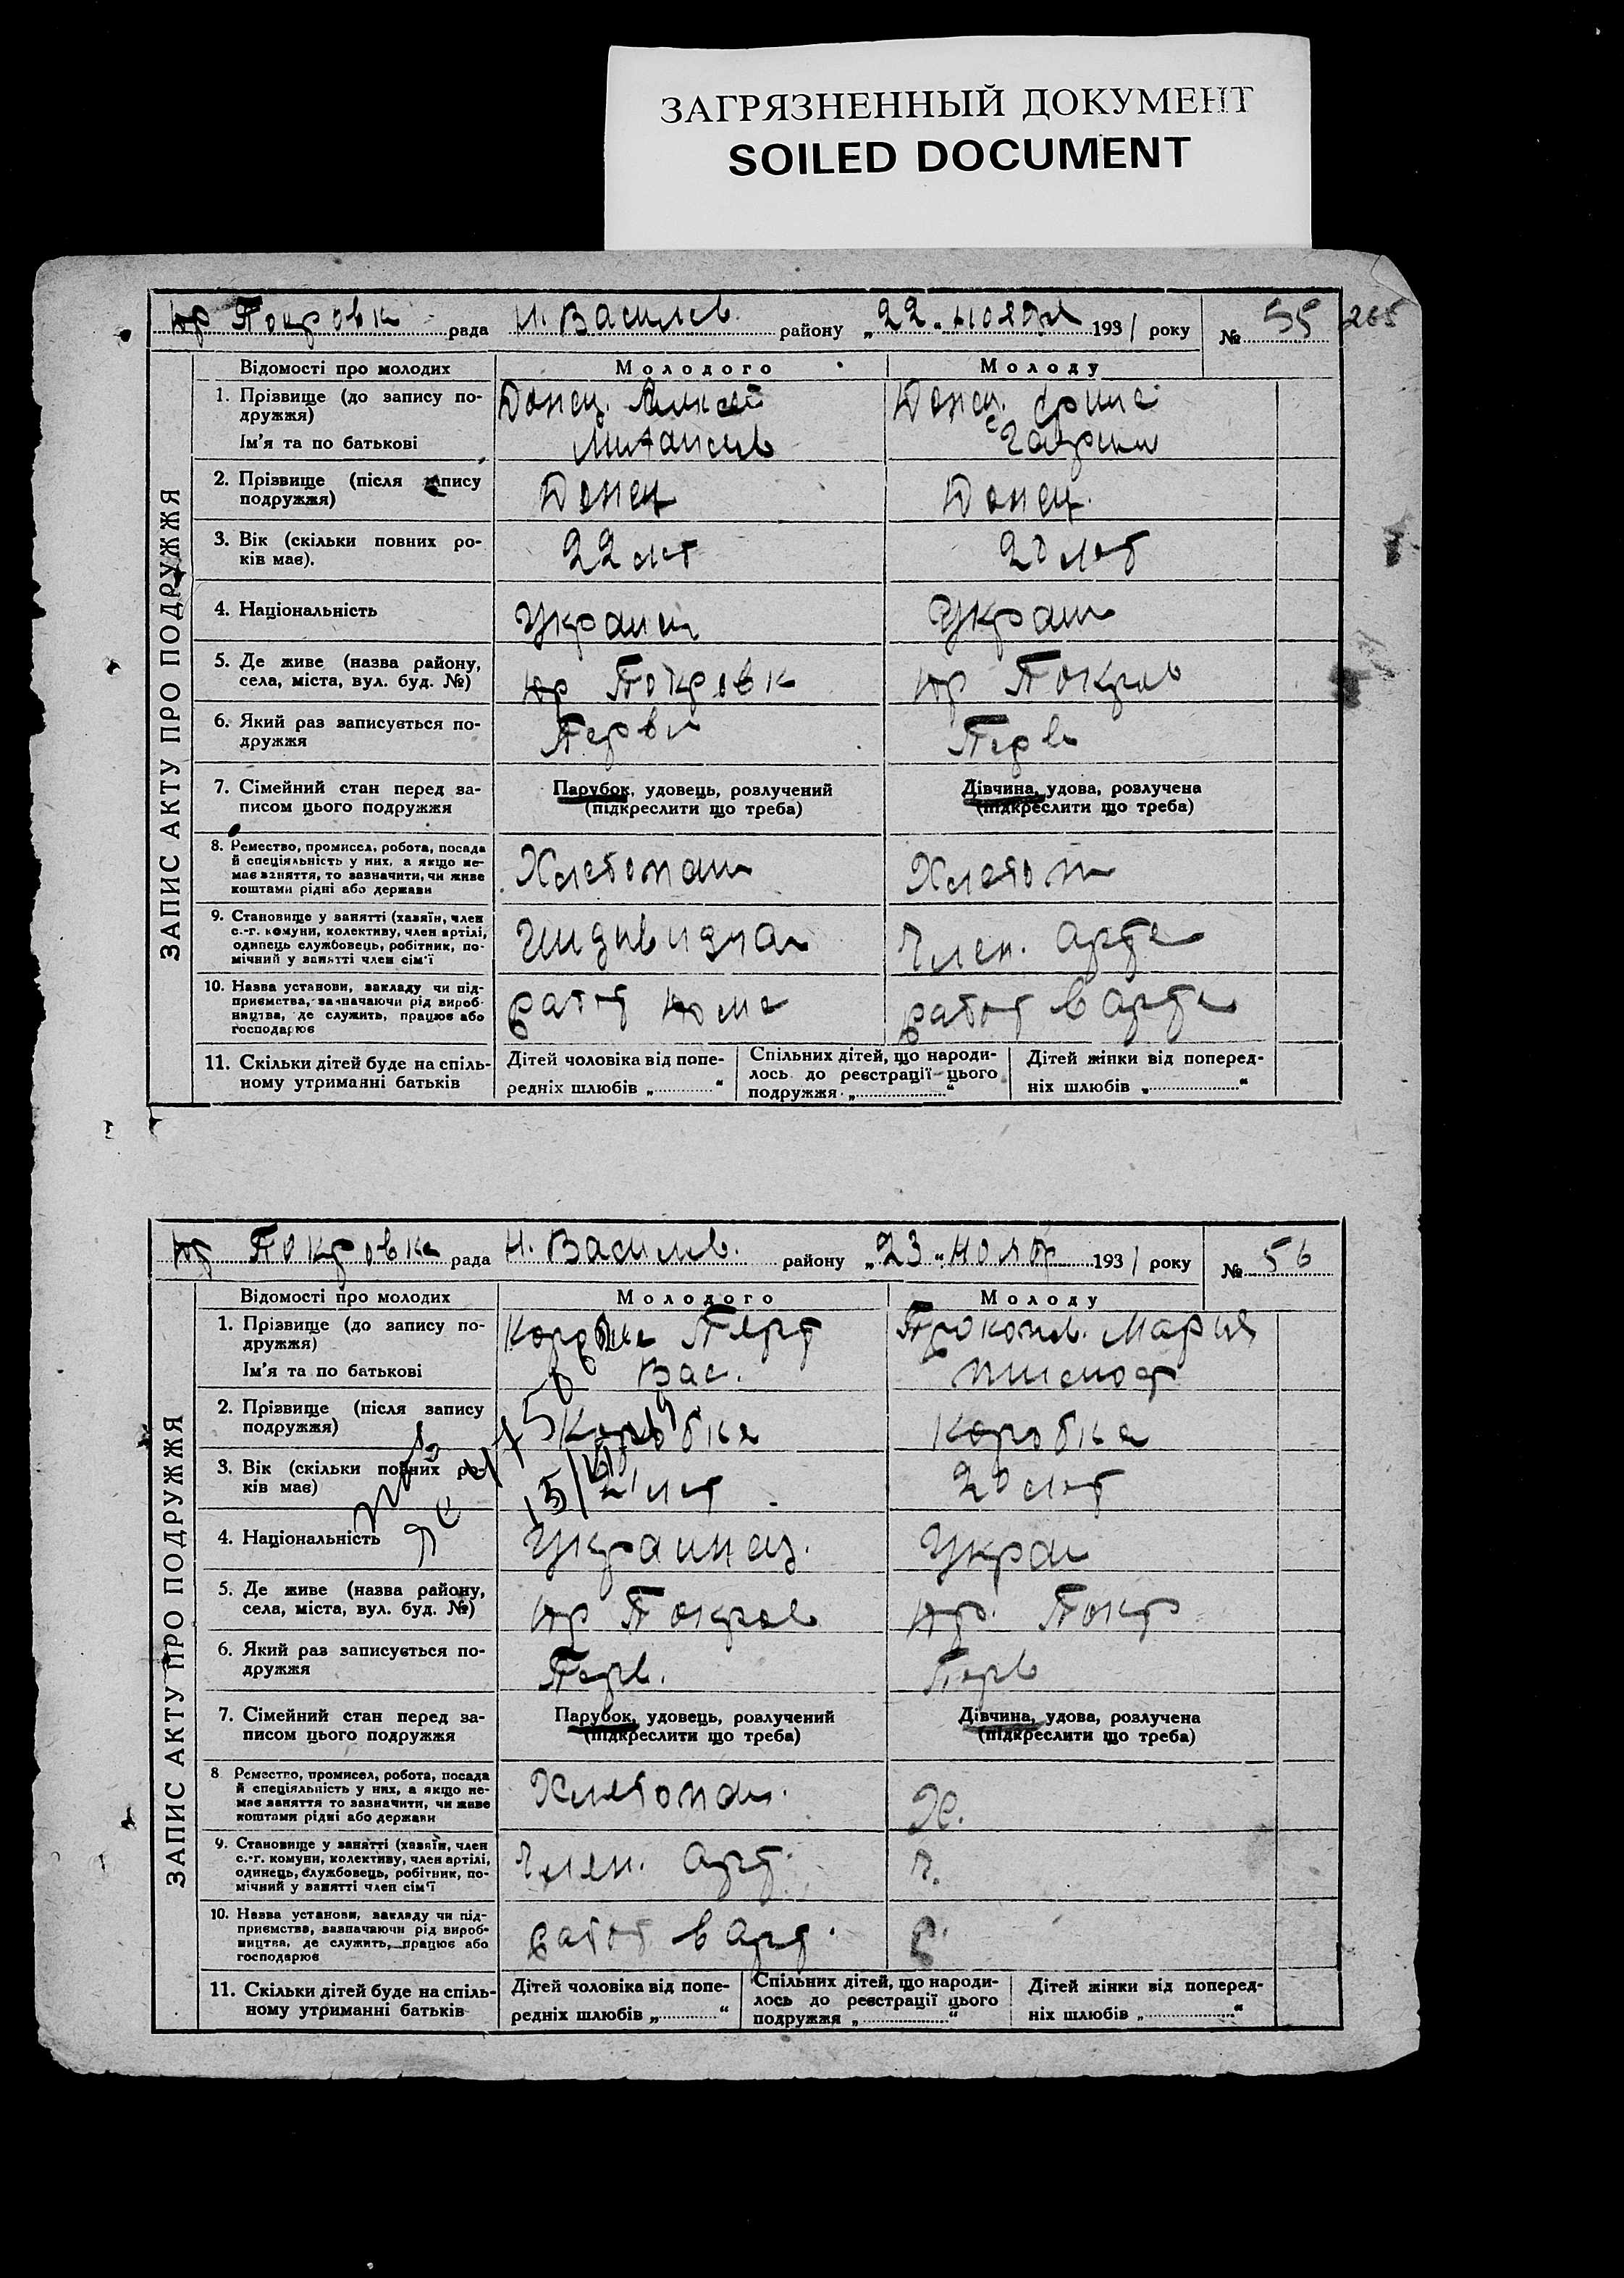 ЗАГРЯЗНЕННЫЙ ДОКУМЕНТ
SOILED DOCUMENT
Юр Покровк рада Н. Василев. району „22„ ноября 1931 року № 55 265
ЗАПИС АКТУ ПРО ПОДРУЖЖЯ
Відомості про молодих Молодого Молоду
1. Прізвище (до запису по- Донец. Алексей Донец.
дружжя)
Ім'я та по батькові
2. Прізвище (після запису Донец Донец.
подружжя)
3. Вік (скільки повних ро- 22 лет 20 лет
ків має).
4. Національність
5. Де живе (назва району, Юр Покровк Юр Покров
села, міста, вул. буд. №)
6. Який раз записується по- Перв
дружжя
7. Сімейний стан перед за- Парубок, удовець, розлучений Дівчина, удова, розлучена
писом цього подружжя (підкреслити що треба) (підкреслити що треба)
8. Ремество, промисел, робота, посада
й спеціяльність у них, а якщо не-
має заняття, то зазначити, чи живе
коштами рідні або держави
9. Становище у занятті (хазяїн, член Член. Арте
с.-г. комуни, колективу, член артілі,
одинець службовець, робітник, по-
мічний у занятті член сім'ї
10. Назва установи, закладу чи під- работ в Арте
приємства, зазначаючи рід вироб-
ництва, де служить, працює або
господарює
11. Скільки дітей буде на спіль- Дітей чоловіка від попе- Спільних дітей, що народи- Дітей жінки від поперед-
ному утриманні батьків редніх шлюбів „ “ лось до реєстрації цього ніх шлюбів „ “
подружжя „ “
Юр Покровка рада Н. Василев. району „23„ ноябр 1931 року № 56
ЗАПИС АКТУ ПРО ПОДРУЖЖЯ
Відомості про молодих Молодого Молоду
1. Прізвище (до запису по- Коробка Петр Прокопов. Мария
дружжя)
Ім'я та по батькові Вас.
2. Прізвище (після запису Коробка Коробка
подружжя)
3. Вік (скільки повних ро- 21 лет 20 лет
ків має)
4. Національність Украинец. Украи
5. Де живе (назва району, Юр Покров Юр. Покр
села, міста, вул. буд. №)
6. Який раз записується по- Перв. Перв
дружжя
7. Сімейний стан перед за- Парубок, удовець, розлучений Дівчина, удова, розлучена
писом цього подружжя (підкреслити що треба) (підкреслити що треба)
8 Ремество, промисел, робота, посада Х.
й спеціяльність у них, а якщо не-
має заняття то зазначити, чи живе
коштами рідні або держави
9. Становище у занятті (хазяїн, член Член. Арт. Ч.
с.-г. комуни, колективу, член артілі,
одинець, службовець, робітник, по-
мічний у занятті член сім'ї
10. Назва установи, закладу чи під- работ в Арт. Р.
приємства, зазначаючи рід вироб-
ництва, де служить, працює або
господарює
11. Скільки дітей буде на спіль- Дітей чоловіка від попе- Спільних дітей, що народи- Дітей жінки від поперед-
ному утриманні батьків редніх шлюбів „ “ лось до реєстрації цього ніх шлюбів „ “
подружжя „ “